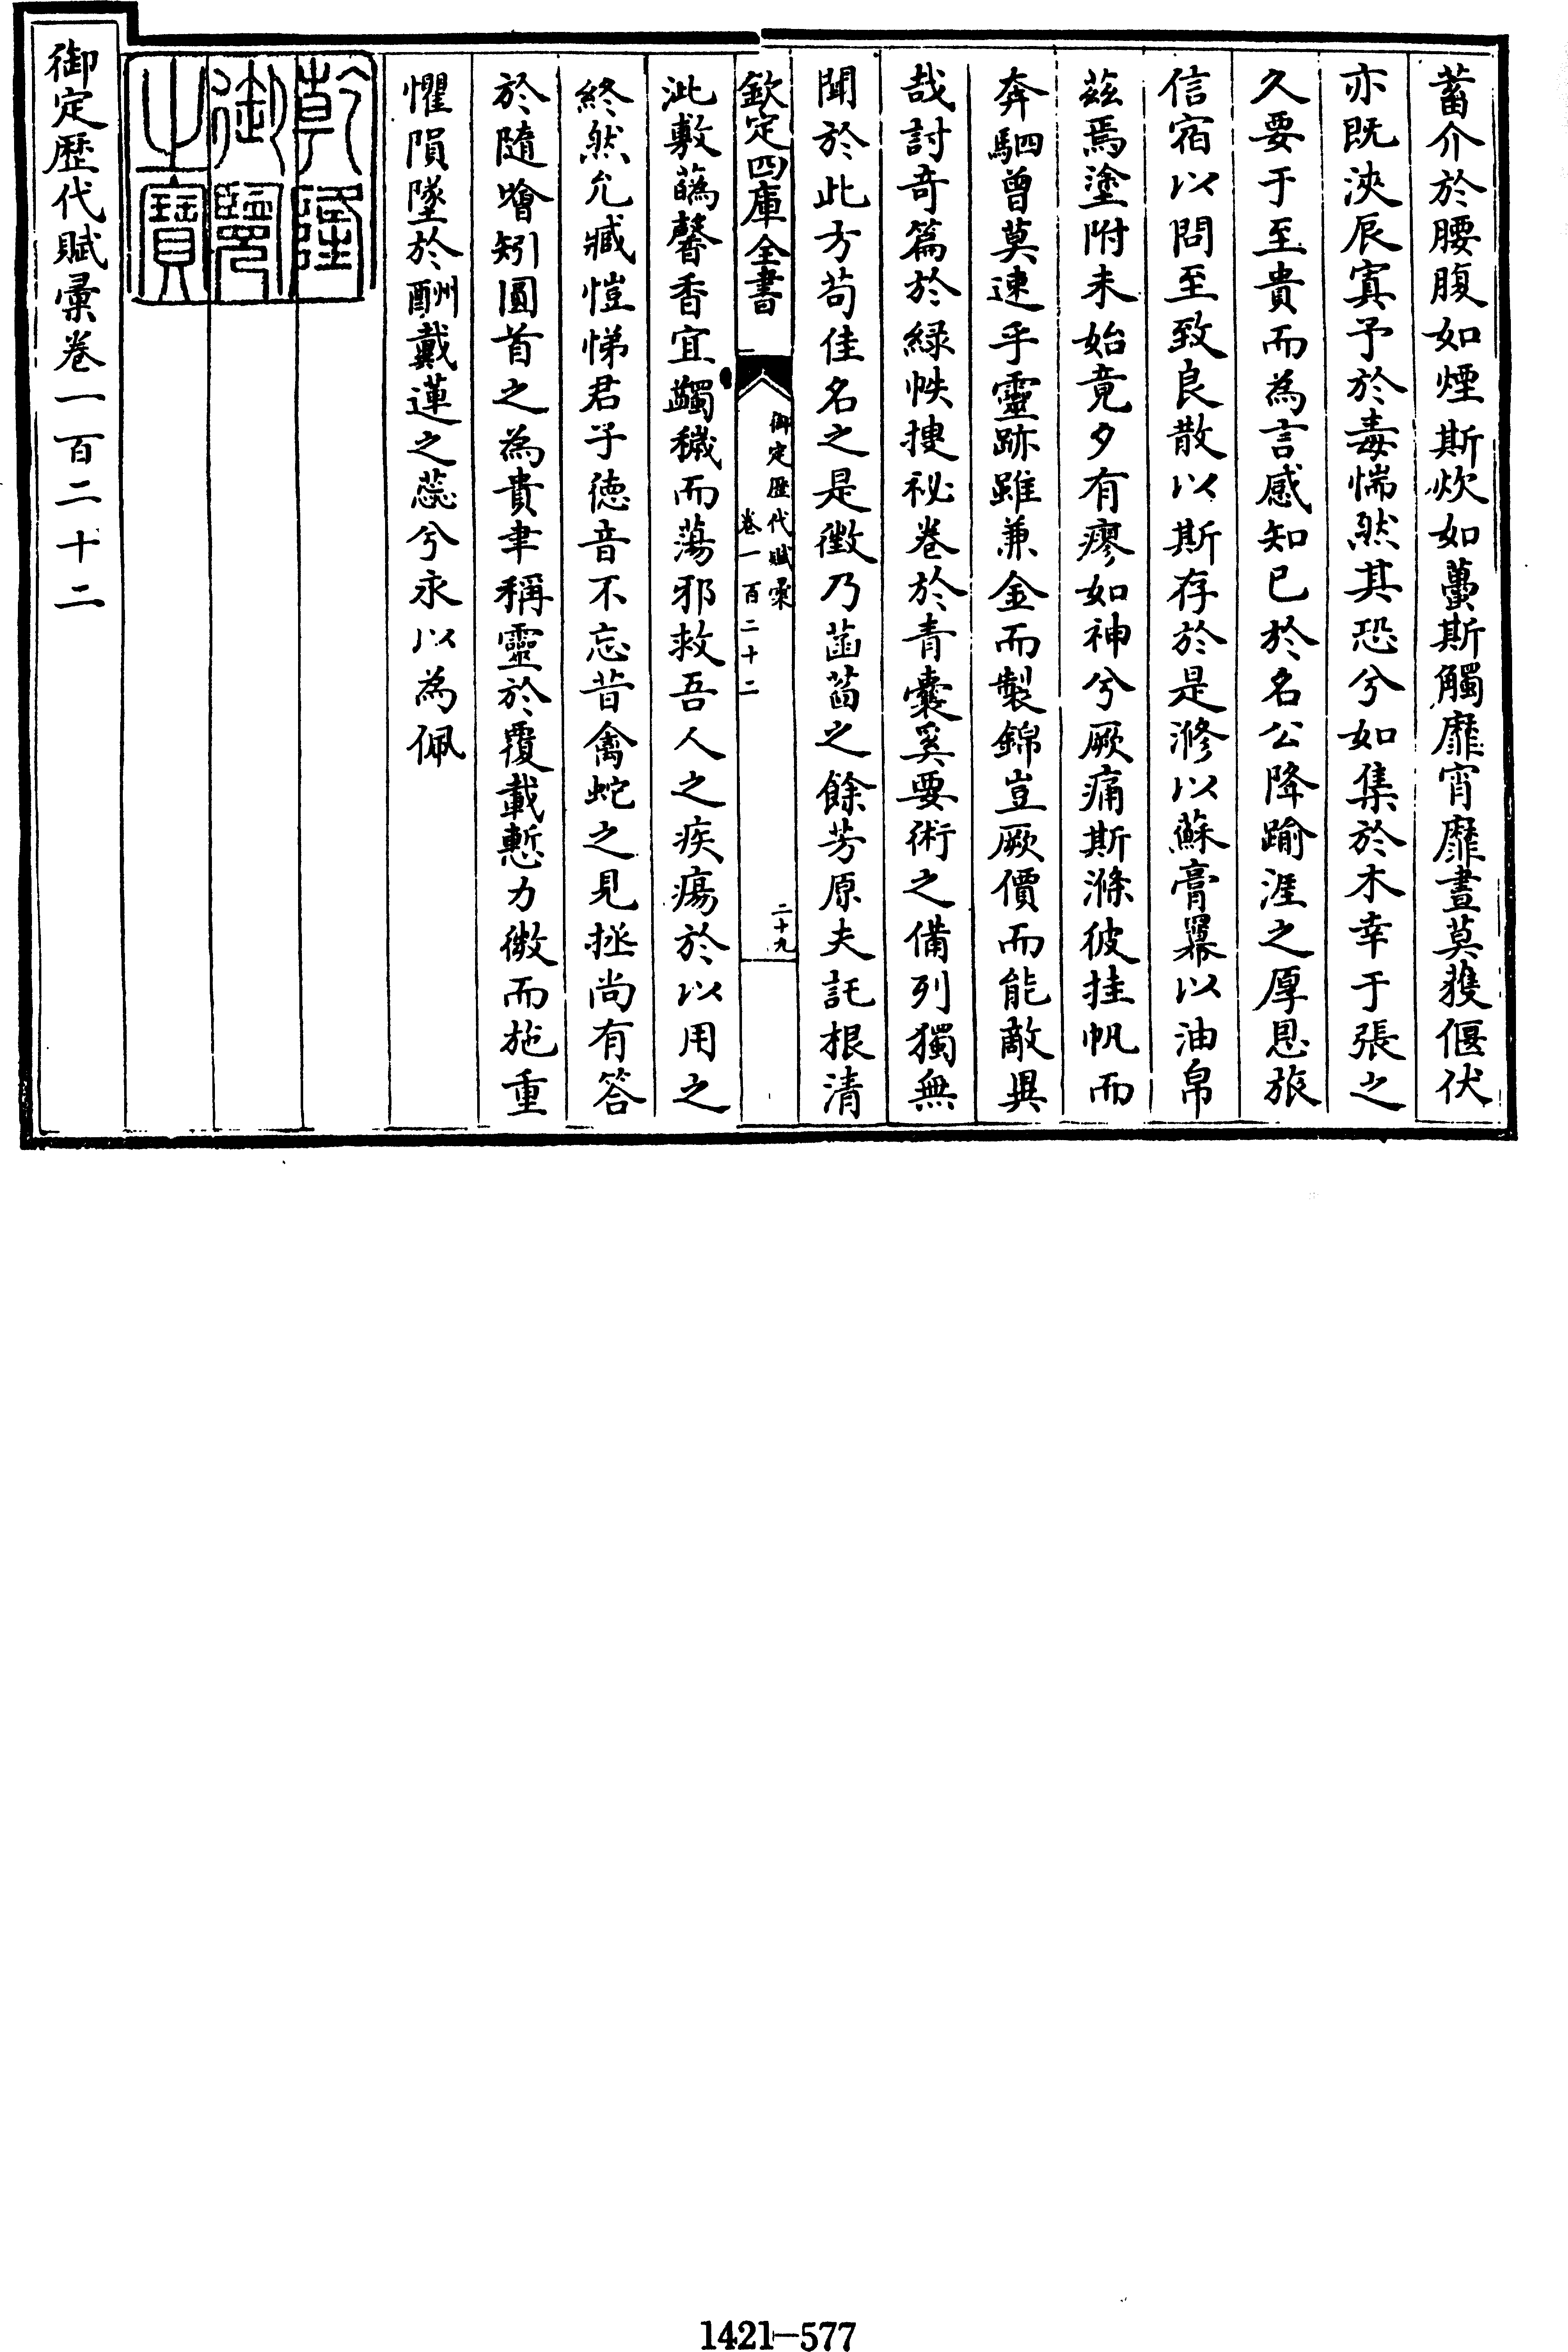 蓄介於腰腹如煙斯炊如蠆斯觸靡宵靡晝莫獲偃伏
亦既浹辰寘予於毒惴然其恐兮如集於木幸于張之
久要于至貴而為言感知已於名公降踰涯之厚恩旅
信宿以問至致良散以斯存於是滫以蘇膏羃以油帛
茲焉塗附未始竟夕有瘳如神兮厥痛斯滌彼挂帆而
奔駟曾莫速乎靈跡雖兼金而製錦豈厥價而能敵異
哉討奇篇於緑帙捜祕卷於青囊奚要術之備列獨無
聞於此方苟佳名之是徵乃菡萏之餘芳原夫託根清
欽定四庫全書
御定歷代賦彙
卷一百二十二
二十九
泚敷蘤馨香宜蠲穢而蕩邪救吾人之疾瘍於以用之
終然允臧愷悌君子徳音不忘昔禽蛇之見拯尚有答
於隨噲矧圓首之為貴聿稱靈於覆載慙力微而施重
懼隕墜於酬戴蓮之蕊兮永以為佩
乾隆御覽之寶
御定歷代賦彙卷一百二十二
1421—577